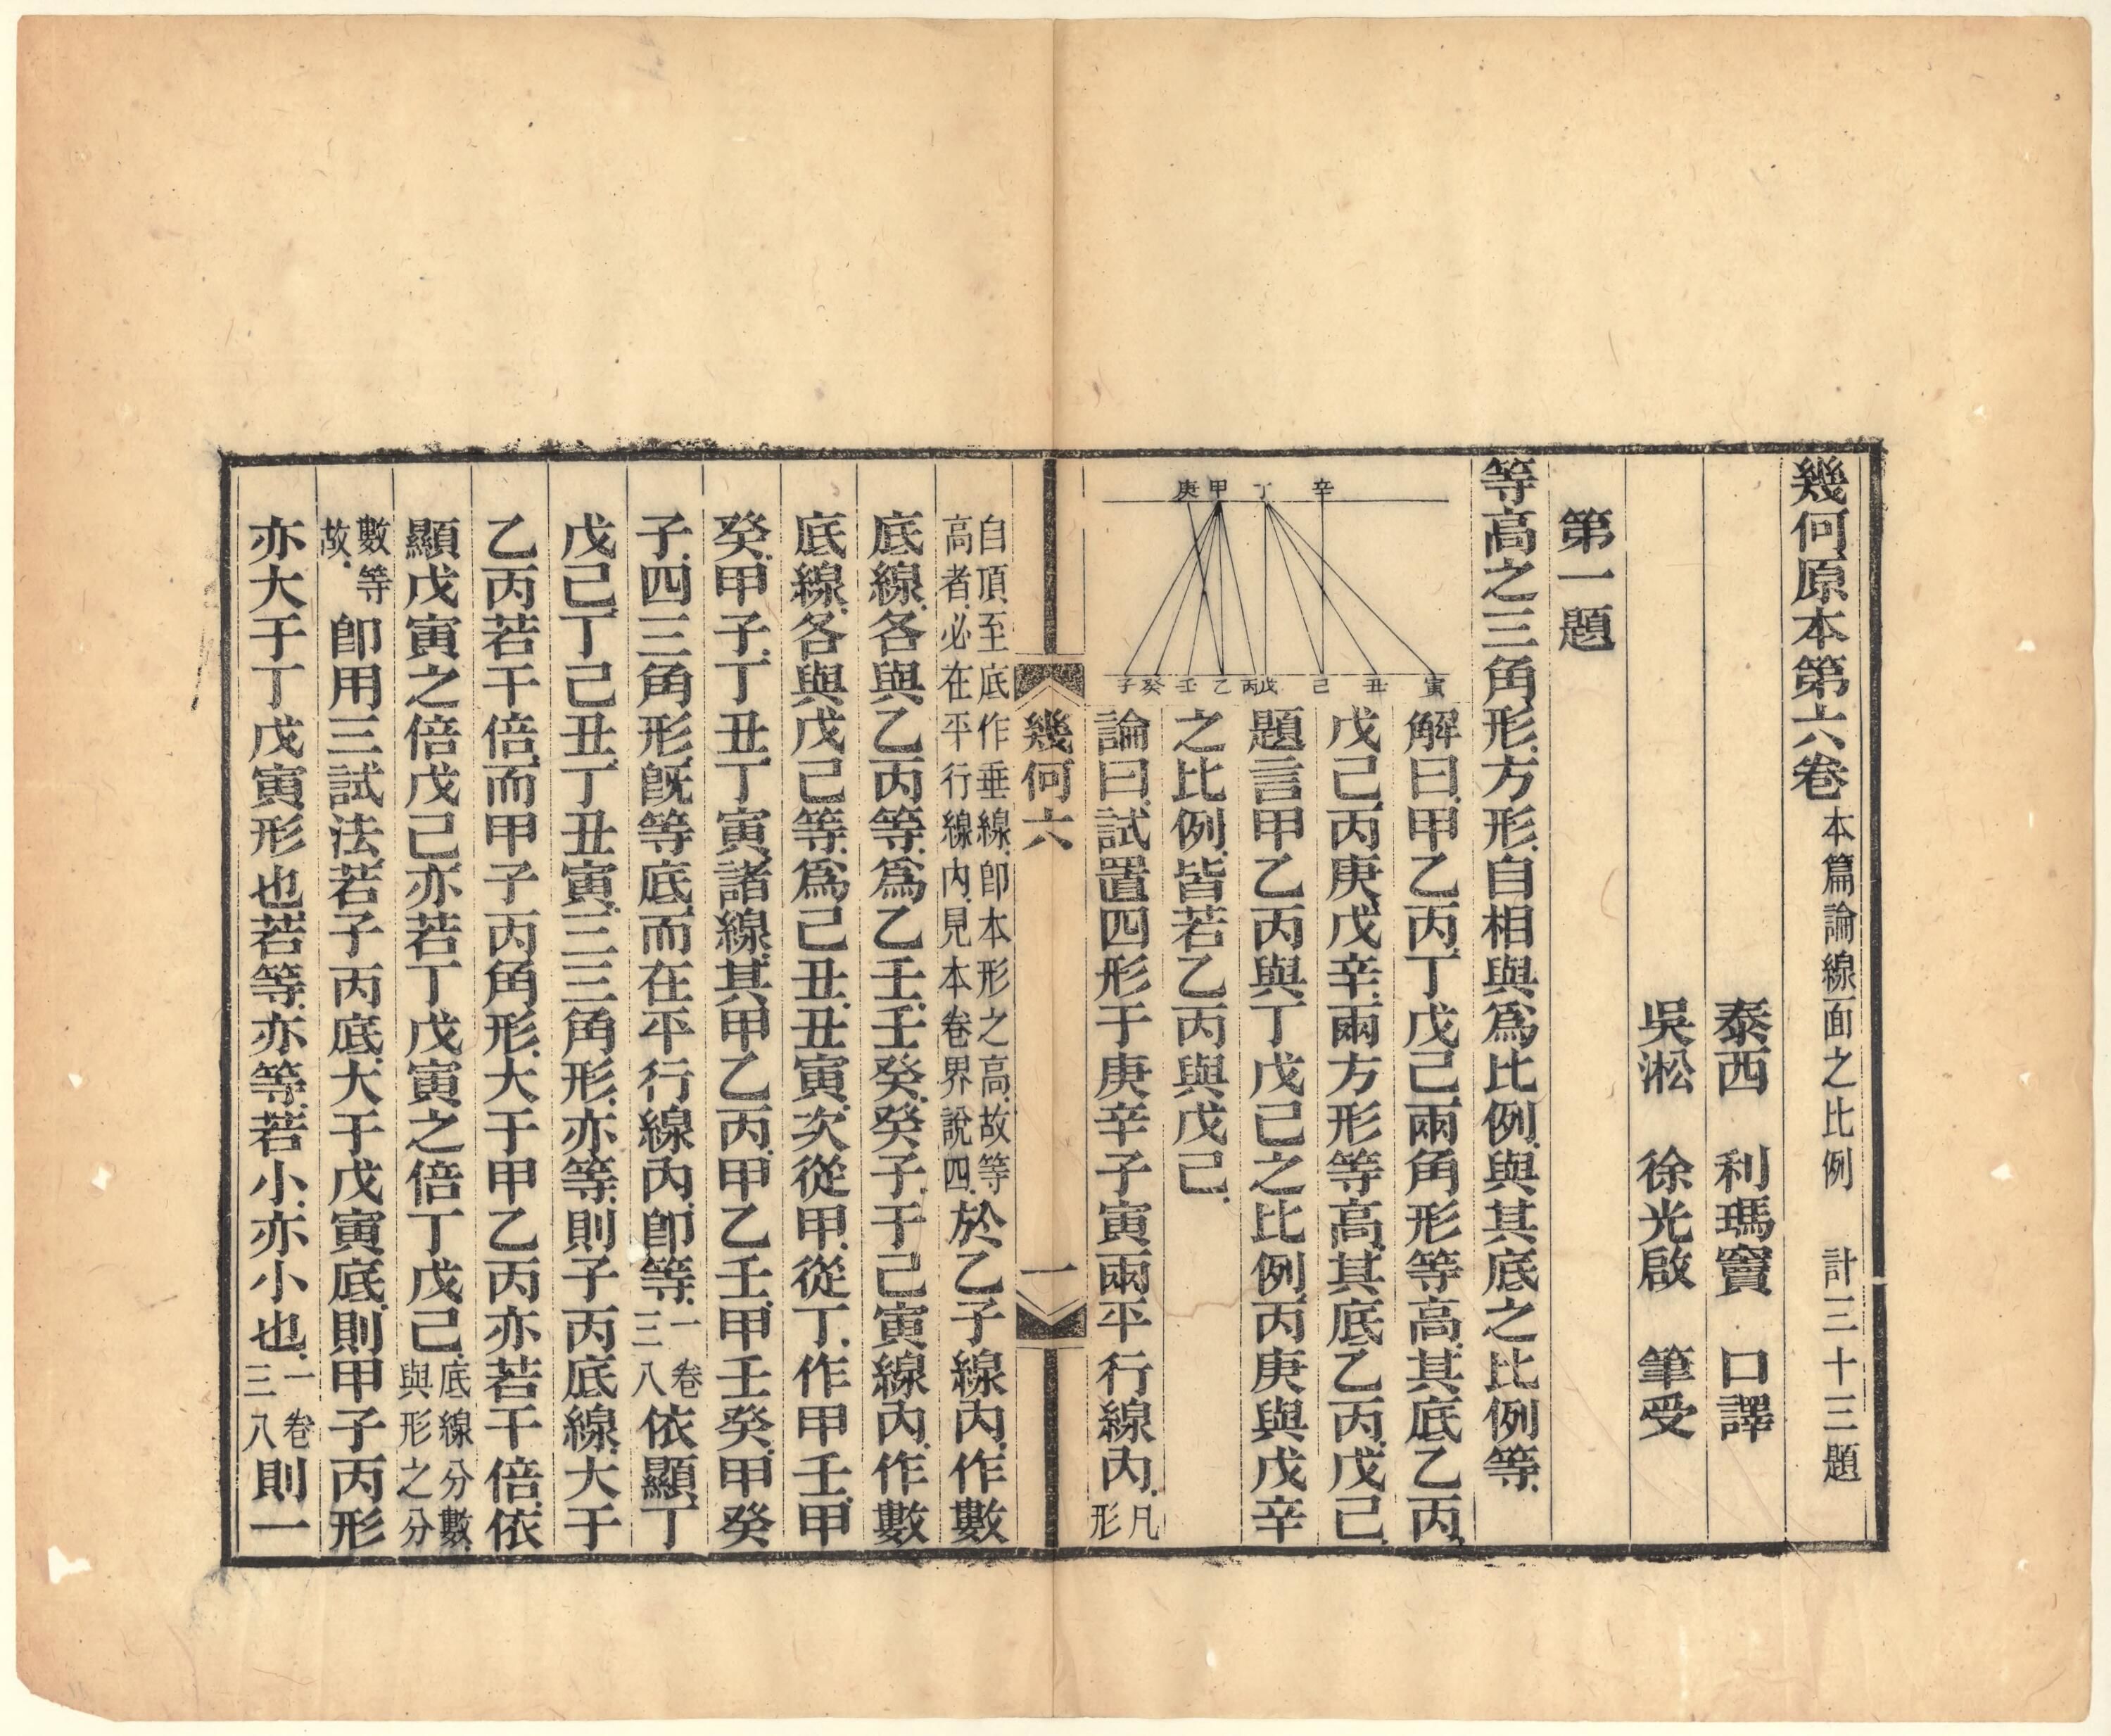 幾何原本第六卷 本篇論線面之比例 計三十三題
泰西 利瑪竇 口譯
吳淞 徐光啟 筆受
第一題
等高之三角形方形自相與爲比例與其底之比例等
庚 甲 丁 辛
子 癸 壬 乙 丙 戊 己 丑 寅
解曰甲乙丙丁戊己兩角形等高其底乙丙
戊己丙庚戊辛兩方形等高其底乙丙戊己
題言甲乙丙與丁戊己之比例丙庚與戊辛
之比例皆若乙丙與戊己
論曰試置四形于庚辛子寅兩平行線內 凡
形
幾何六 一
自頂至底作垂線卽本形之高故等
高者必在平行線內見本卷界說四
於乙子線內作數
底線各與乙丙等爲乙壬壬癸癸子于己寅線內作數
底線各與戊己等爲己丑丑寅次從甲從丁作甲壬甲
癸甲子丁丑丁寅諸線其甲乙丙甲乙壬甲壬癸甲癸
子四三角形旣等底而在平行線內卽等 一卷
三八
依顯丁
戊己丁己丑丁丑寅三三角形亦等則子丙底線大于
乙丙若干倍而甲子丙角形大于甲乙丙亦若干倍依
顯戊寅之倍戊己亦若丁戊寅之倍丁戊己 底線分數
與形之分
數等
故
卽用三試法若子丙底大于戊寅底則甲子丙形
亦大于丁戊寅形也若等亦等若小亦小也 一卷
三八
則一